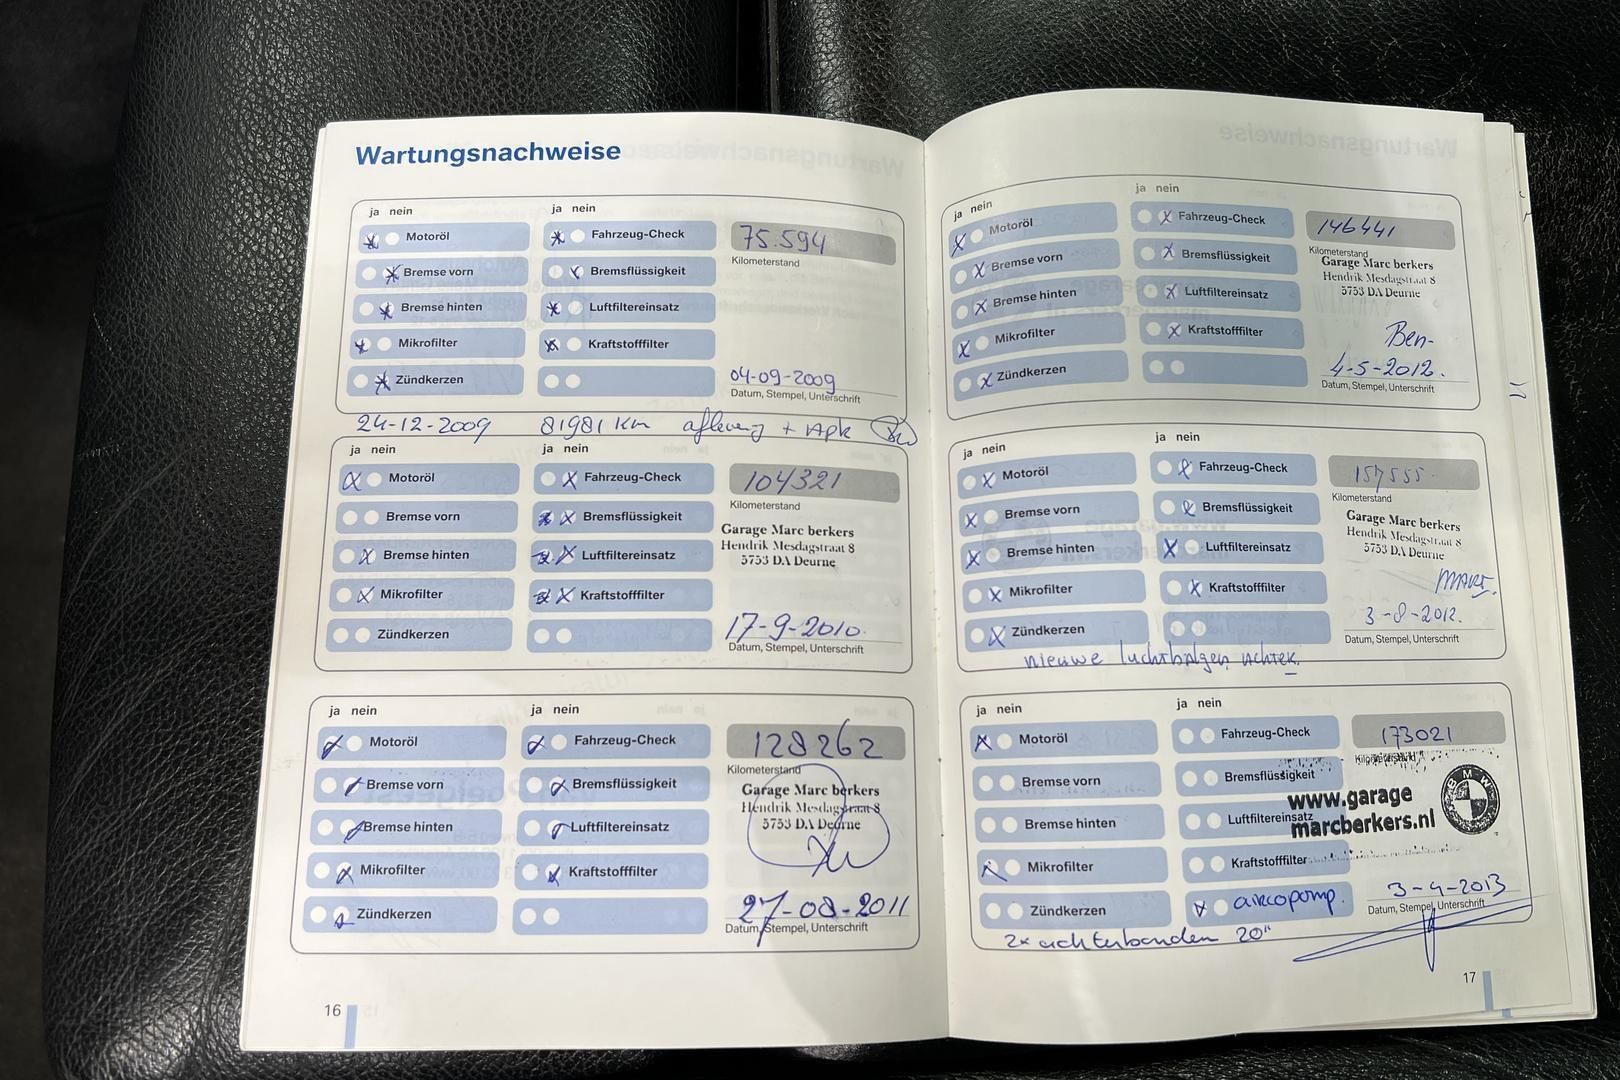 Wartungsnachweise
ja nein
ja nein
Motoröl
Fahrzeug-Check
75.594
Kilometerstand
Bremse vorn
Bremsflüssigkeit
Bremse hinten
Luftfiltereinsatz
Mikrofilter
Kraftstofffilter
Zündkerzen
04-09-2009
Datum, Stempel, Unterschrift
24-12-2009 81981 km aflevering + Apk
ja nein
ja nein
Motoröl
Fahrzeug-Check
104321
Kilometerstand
Bremse vorn
Bremsflüssigkeit
Garage Marc berkers
Hendrik Mesdagstraat 8
5753 DA Deurne
Bremse hinten
Luftfiltereinsatz
Mikrofilter
Kraftstofffilter
Zündkerzen
17-9-2010.
Datum, Stempel, Unterschrift
ja nein
ja nein
Motoröl
Fahrzeug-Check
128262
Kilometerstand
Bremse vorn
Bremsflüssigkeit
Garage Marc berkers
Hendrik Mesdagstraat 8
5753 DA Deurne
Bremse hinten
Luftfiltereinsatz
Mikrofilter
Kraftstofffilter
Zündkerzen
27-08-2011
Datum, Stempel, Unterschrift
16
ja nein
ja nein
Motoröl
Fahrzeug-Check
146441
Kilometerstand
Garage Marc berkers
Hendrik Mesdagstraat 8
5753 DA Deurne
Bremse vorn
Bremsflüssigkeit
Bremse hinten
Luftfiltereinsatz
Mikrofilter
Kraftstofffilter
Ben-
Zündkerzen
4-5-2012.
Datum, Stempel, Unterschrift
ja nein
ja nein
Motoröl
Fahrzeug-Check
157555
Kilometerstand
Bremse vorn
Bremsflüssigkeit
Garage Marc berkers
Hendrik Mesdagstraat 8
5753 DA Deurne
Bremse hinten
Luftfiltereinsatz
Mikrofilter
Kraftstofffilter
MART.
Zündkerzen
3-8-2012.
Datum, Stempel, Unterschrift
nieuwe luchtbalgen achter.
ja nein
ja nein
Motoröl
Fahrzeug-Check
173021
Kilometerstand
Bremse vorn
Bremsflüssigkeit
www.garage
marcberkers.nl
BMW
Bremse hinten
Luftfiltereinsatz
Mikrofilter
Kraftstofffilter
Zündkerzen
aircopomp.
3-4-2013
Datum, Stempel, Unterschrift
2x achterbanden 20"
17